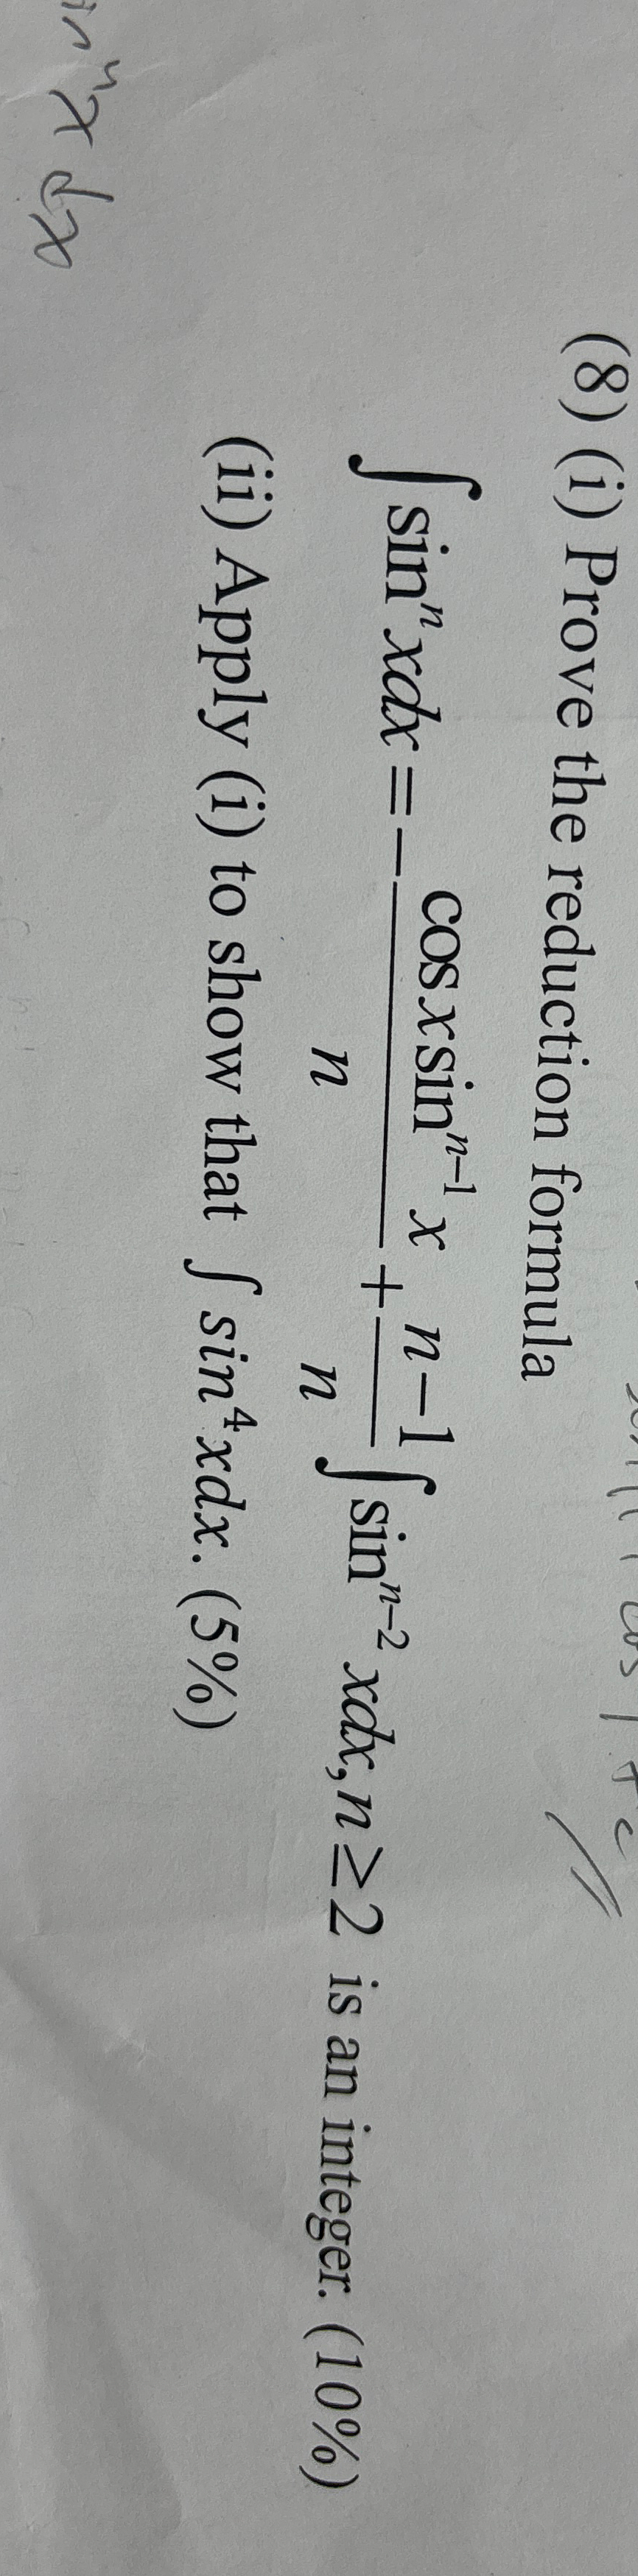 (8) (i) Prove the reduction formula
∫ sinⁿ xdx = − (cos x sinⁿ⁻¹ x)/n + (n−1)/n ∫ sinⁿ⁻² xdx, n ≥ 2 is an integer. (10%)
(ii) Apply (i) to show that ∫ sin⁴xdx. (5%)
x dx